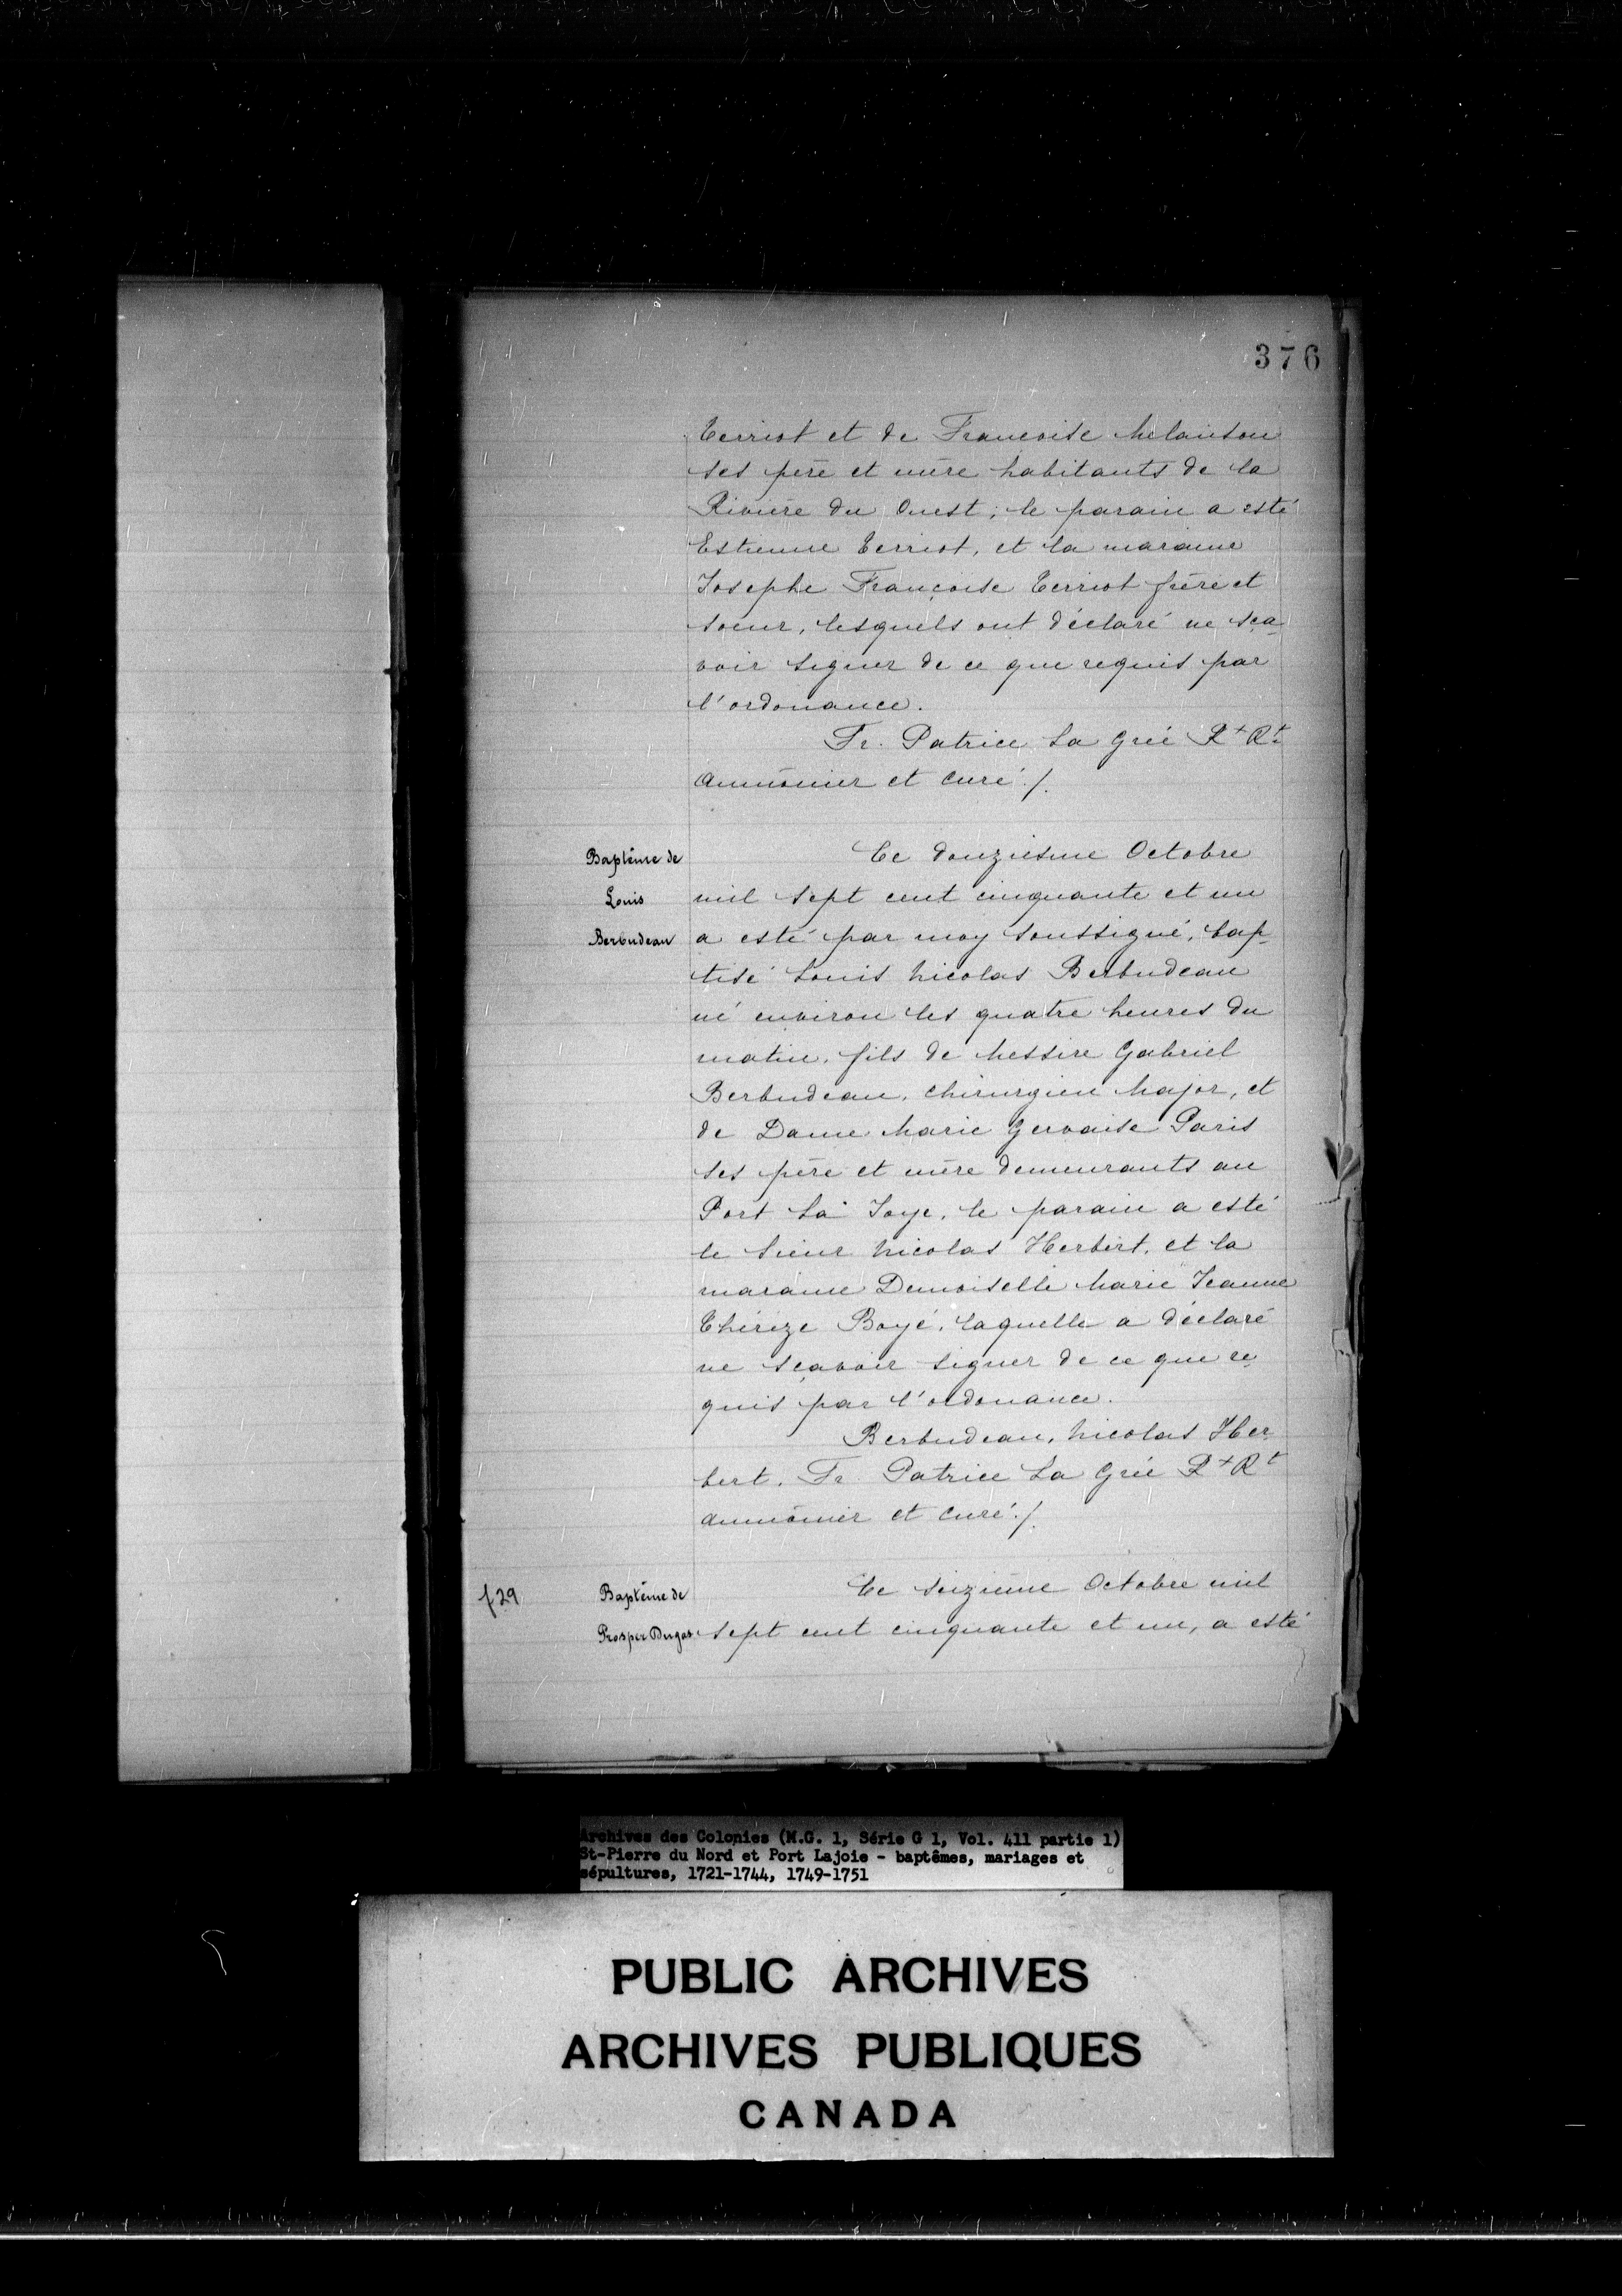 376
Terriot et de Francoise Melanson
ses père et mère habitants de la
Rivière du Ouest; le parain a esté
Estienne Terriot, et la maraine
Josephe Françoise Terriot frère et
soeur, lesquels ont déclaré ne sça-
voir signer de ce que requis par
l'ordonance.
Fr. Patrice La Grée Rt Rt
aumônier et curé./.
Baptême de
Louis
Berbudeau
Ce douziesme Octobre
mil sept cent cinquante et un
a esté par moy soussigné, bap-
tisé Louis Nicolas Berbudeau
né environ les quatre heures du
matin, fils de Messire Gabriel
Berbudeau, chirurgien Major, et
de Dame Marie Gervaise Paris
ses père et mère demeurants au
Port La Joye, le parain a esté
le Sieur Nicolas Herbert, et la
maraine Demoiselle Marie Jeanne
Thérèze Boyé, laquelle a déclaré
ne sçavoir signer de ce que re-
quis par l'ordonance.
Berbudeau, Nicolas Her-
bert. Fr. Patrice La Grée Rt Rt
aumônier et curé./.
f 29
Baptême de
Prosper Dugas
Ce seizième Octobre mil
sept cent cinquante et un, a esté
Archives des Colonies (M.G. 1, Série G 1, Vol. 411 partie 1)
St-Pierre du Nord et Port Lajoie - baptêmes, mariages et
sépultures, 1721-1744, 1749-1751
PUBLIC ARCHIVES
ARCHIVES PUBLIQUES
CANADA